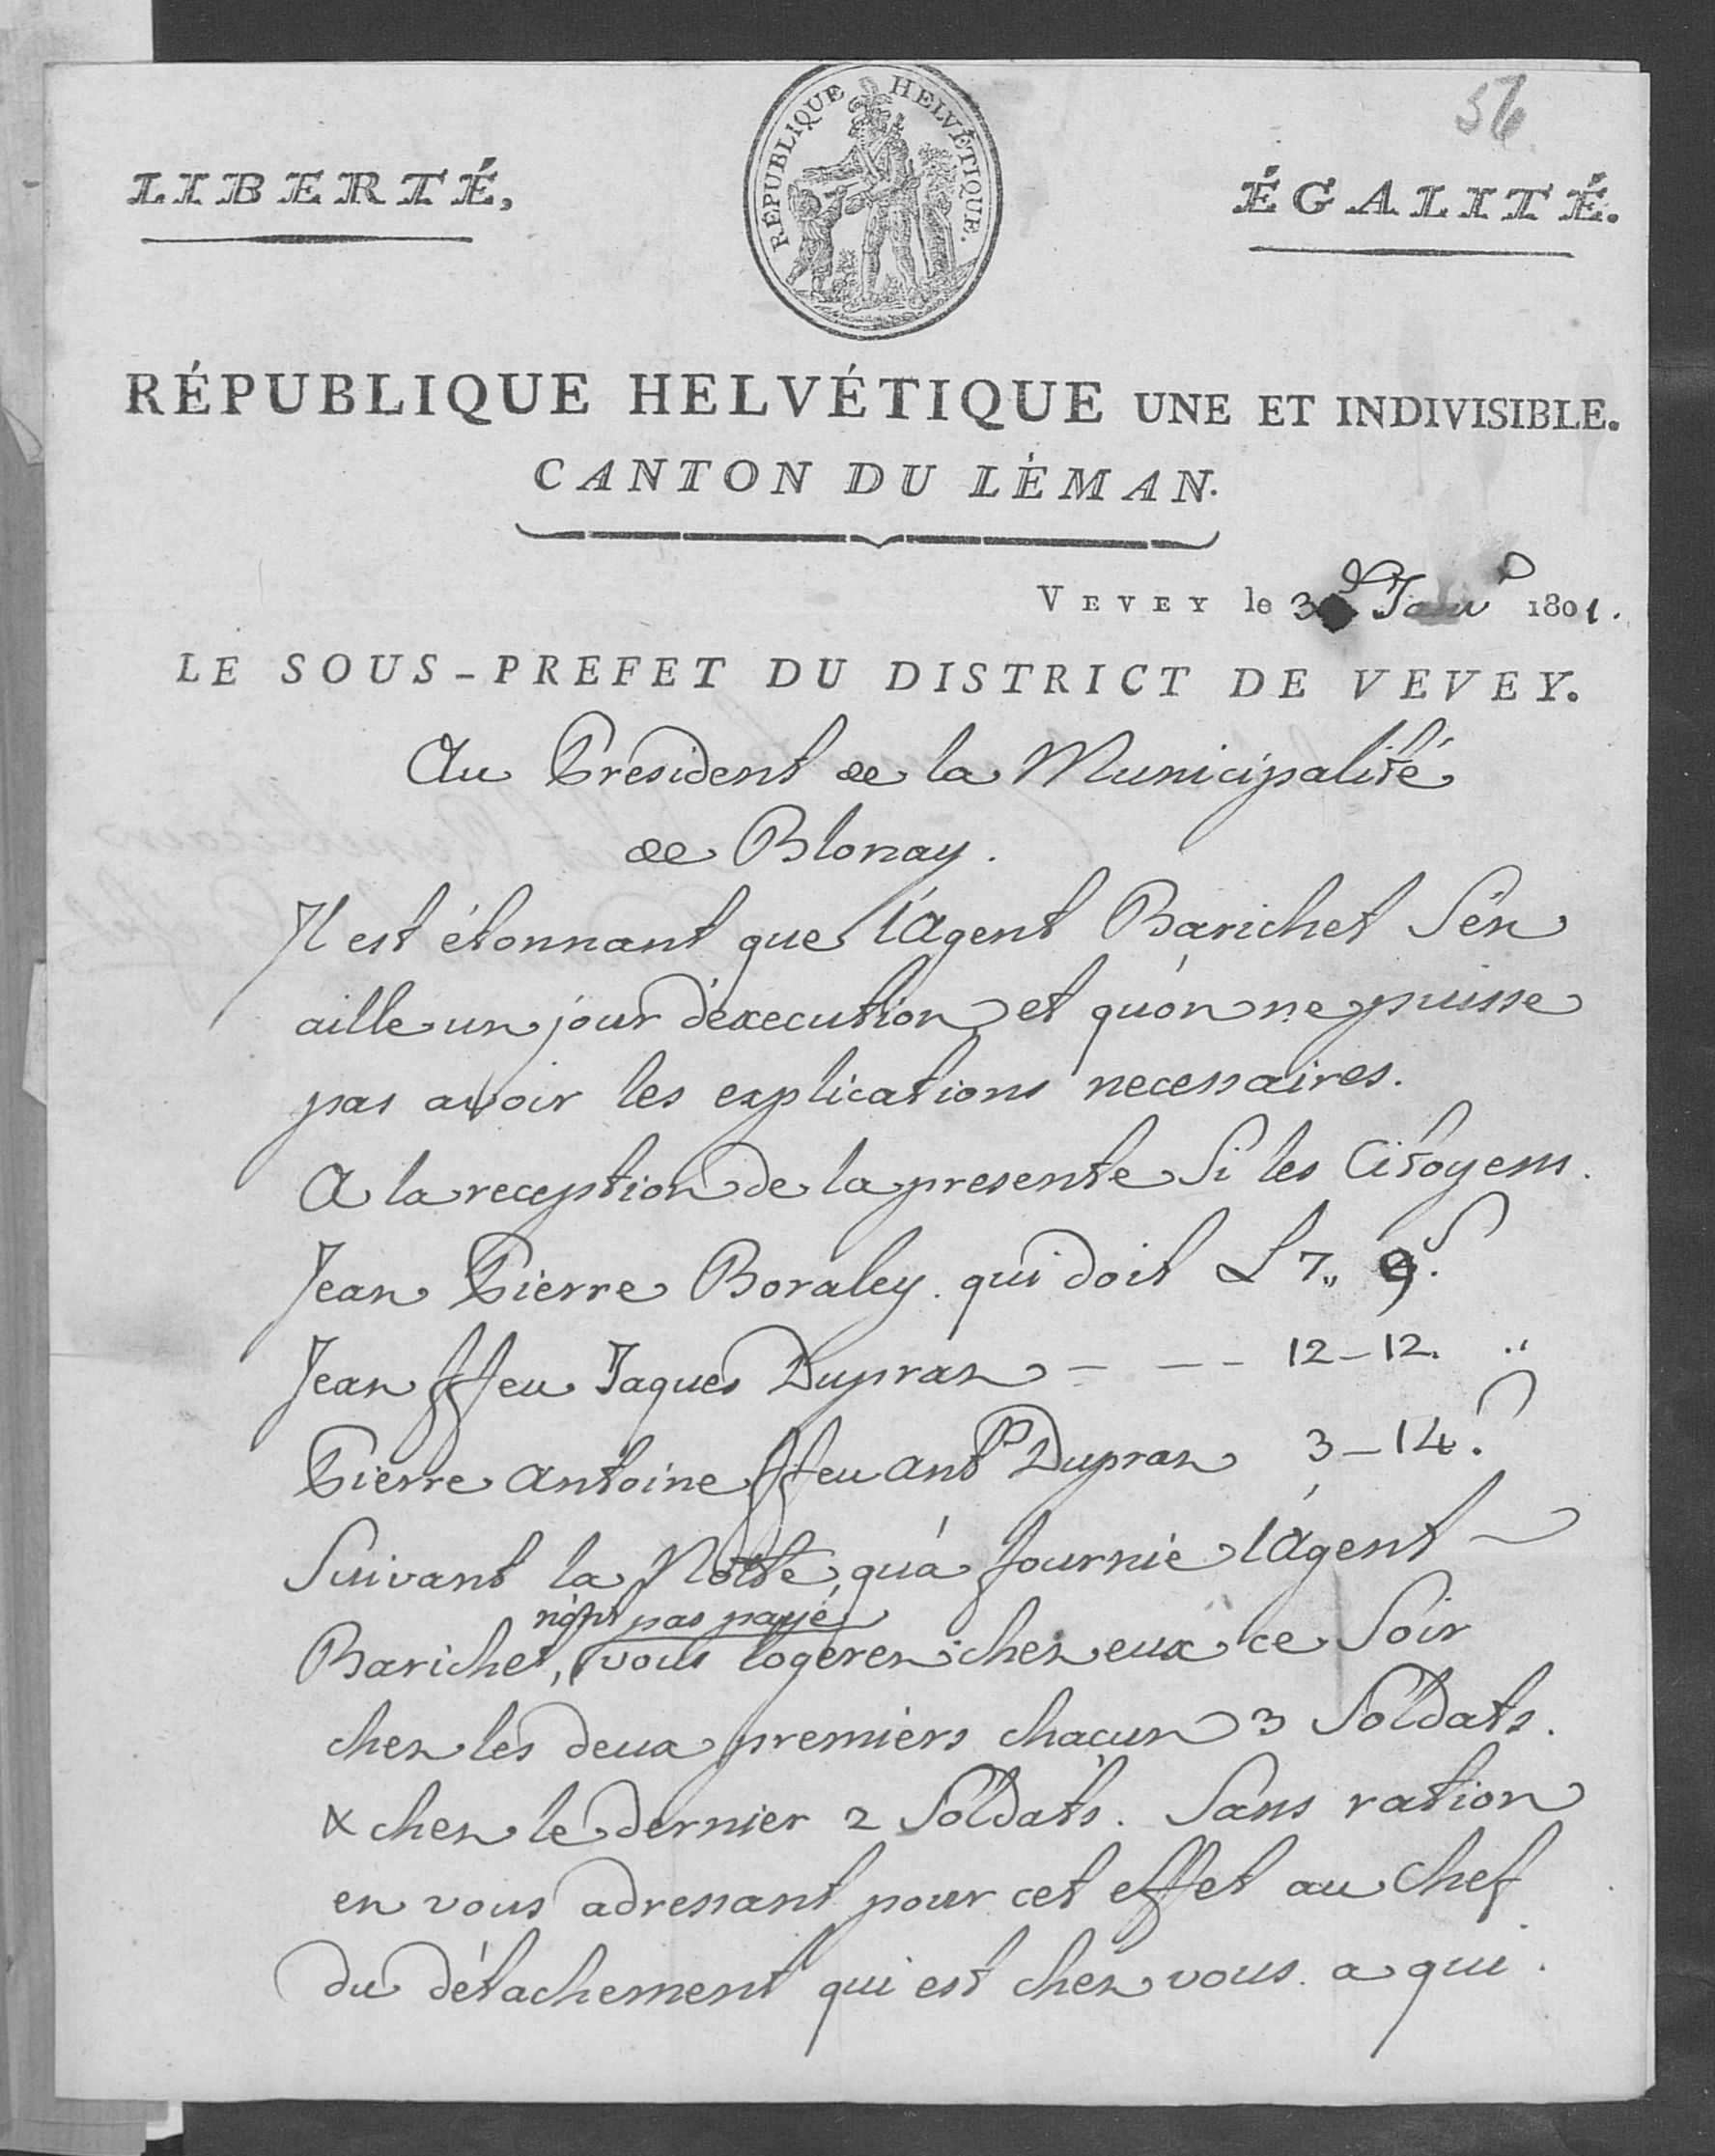 56
RÉPUBLIQUE HELVÉTIQUE.
LIBERTÉ,
ÉGALITÉ.
RÉPUBLIQUE HELVÉTIQUE UNE ET INDIVISIBLE.
CANTON DU LÉMAN.
VEVEY le Janv 1801.
LE SOUS-PREFET DU DISTRICT DE VEVEY.
Au President de la Municipalité
de Blonay.
Il est étonnant que l'Agent Barichet s'en
aille un jour d'execution et qu'on ne puisse
pas avoir les explications necessaires.
A la reception de la presente Si les Citoyens.
Jean Pierre Boraley. qui doit L 7,, 9 S.
Jean ffeu Jaques Dupraz - - - 12-12. ,,
Pierre Antoine ffeu Ante Dupraz 3-14.
Suivant la Notte, qu'a fournie l'Agent
n'ont pas payé,
Barichet, vous logerez chez eux ce Soir
chez les deux premiers chacun 3 Soldats.
& chez le dernier 2 Soldats. Sans ration
en vous adressant pour cet effet au Chef
du détachement qui est chez vous. a qui.